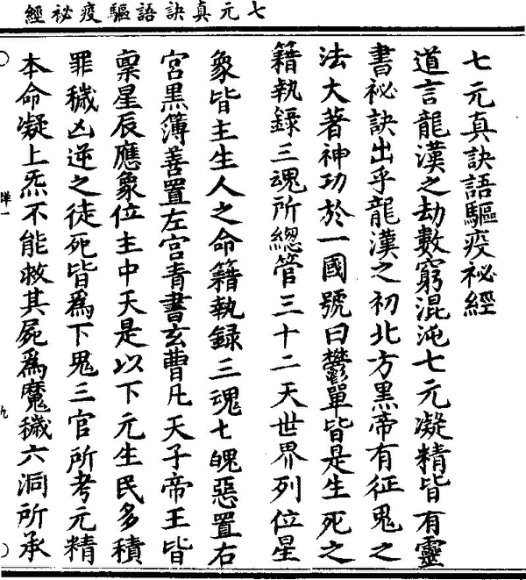 七元真訣語驅疫祕經
七元真訣語驅疫祕經
道言龍漢之劫數窮混沌七元凝精皆有靈
書祕訣出乎龍漢之初北方黑帝有征鬼之
法大著神功於一國號曰鬱單皆是生死之
籍執錄三魂所總管三十二天世界列位星
象皆主生人之命籍執録三魂七魄惡置右
宮黑簿善置左宮青書玄曹凡天子帝王皆
稟星辰應象位主中天是以下元生民多積
罪穢凶逆之徒死皆爲下鬼三官所考元精
本命凝上炁不能救其屍爲魔穢六洞所承
九